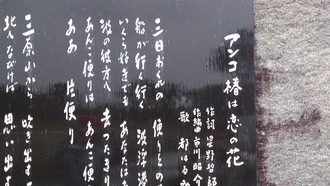 アンコ椿は恋の花
作詞 星野哲郎
作曲 市川昭介
歌 都はるみ
三日おくれの 便りをの
船が行く行く 波浮港
いくら好きでも あなたは
波の彼方へ 去ったきり
あんこ便りは あんこ便
ああ 片便り
三原山から 吹き出す
北へなびけば 思い出す